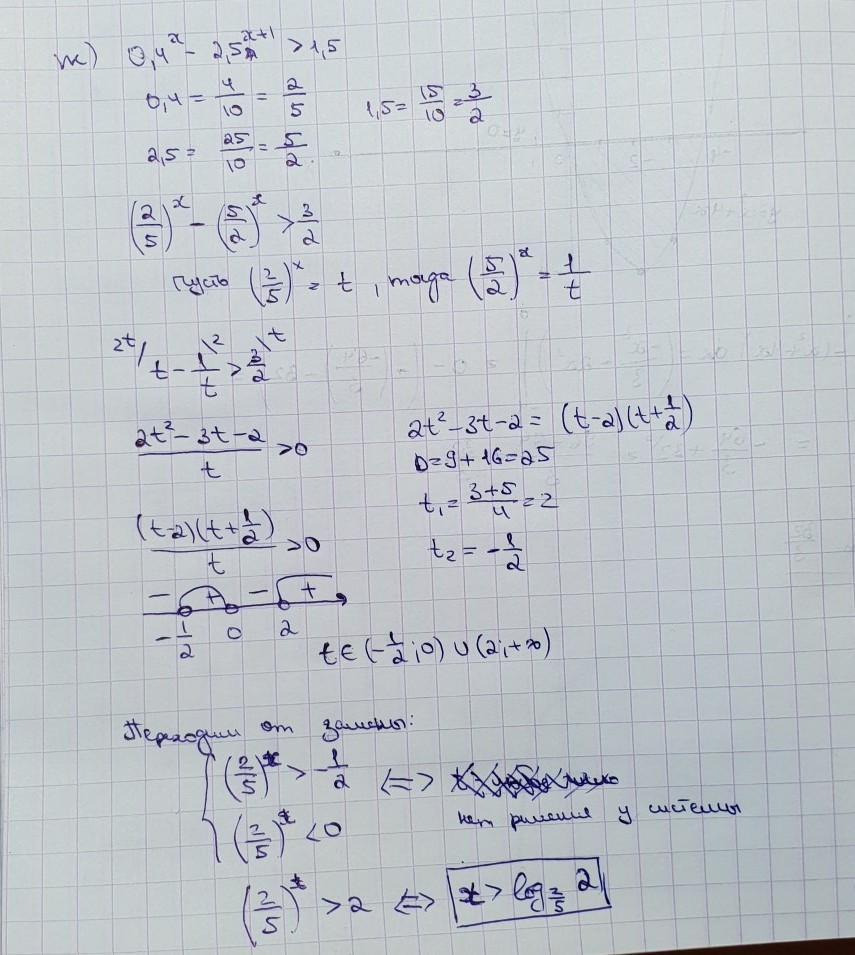 ж) 0,4^x - 2,5^{x+1} > 1,5
0,4 = 4/10 = 2/5   1,5 = 15/10 = 3/2
2,5 = 25/10 = 5/2
(2/5)^x - (5/2)^x > 3/2
Пусть (2/5)^x = t, тогда (5/2)^x = 1/t
2t/ t - 1/t \2 > 3/2 \t
(2t² - 3t - 2)/t > 0   2t² - 3t - 2 = (t-2)(t+1/2)
D = 9 + 16 = 25
t₁ = (3+5)/4 = 2
((t-2)(t+1/2))/t > 0   t₂ = -1/2
- + - +
-1/2 0 2
t ∈ (-1/2; 0) ∪ (2; +∞)
Переходим от замены:
{ (2/5)^x > -1/2 <=>
(2/5)^x < 0   нет решения у системы
(2/5)^x > 2 <=> x > log_{2/5} 2